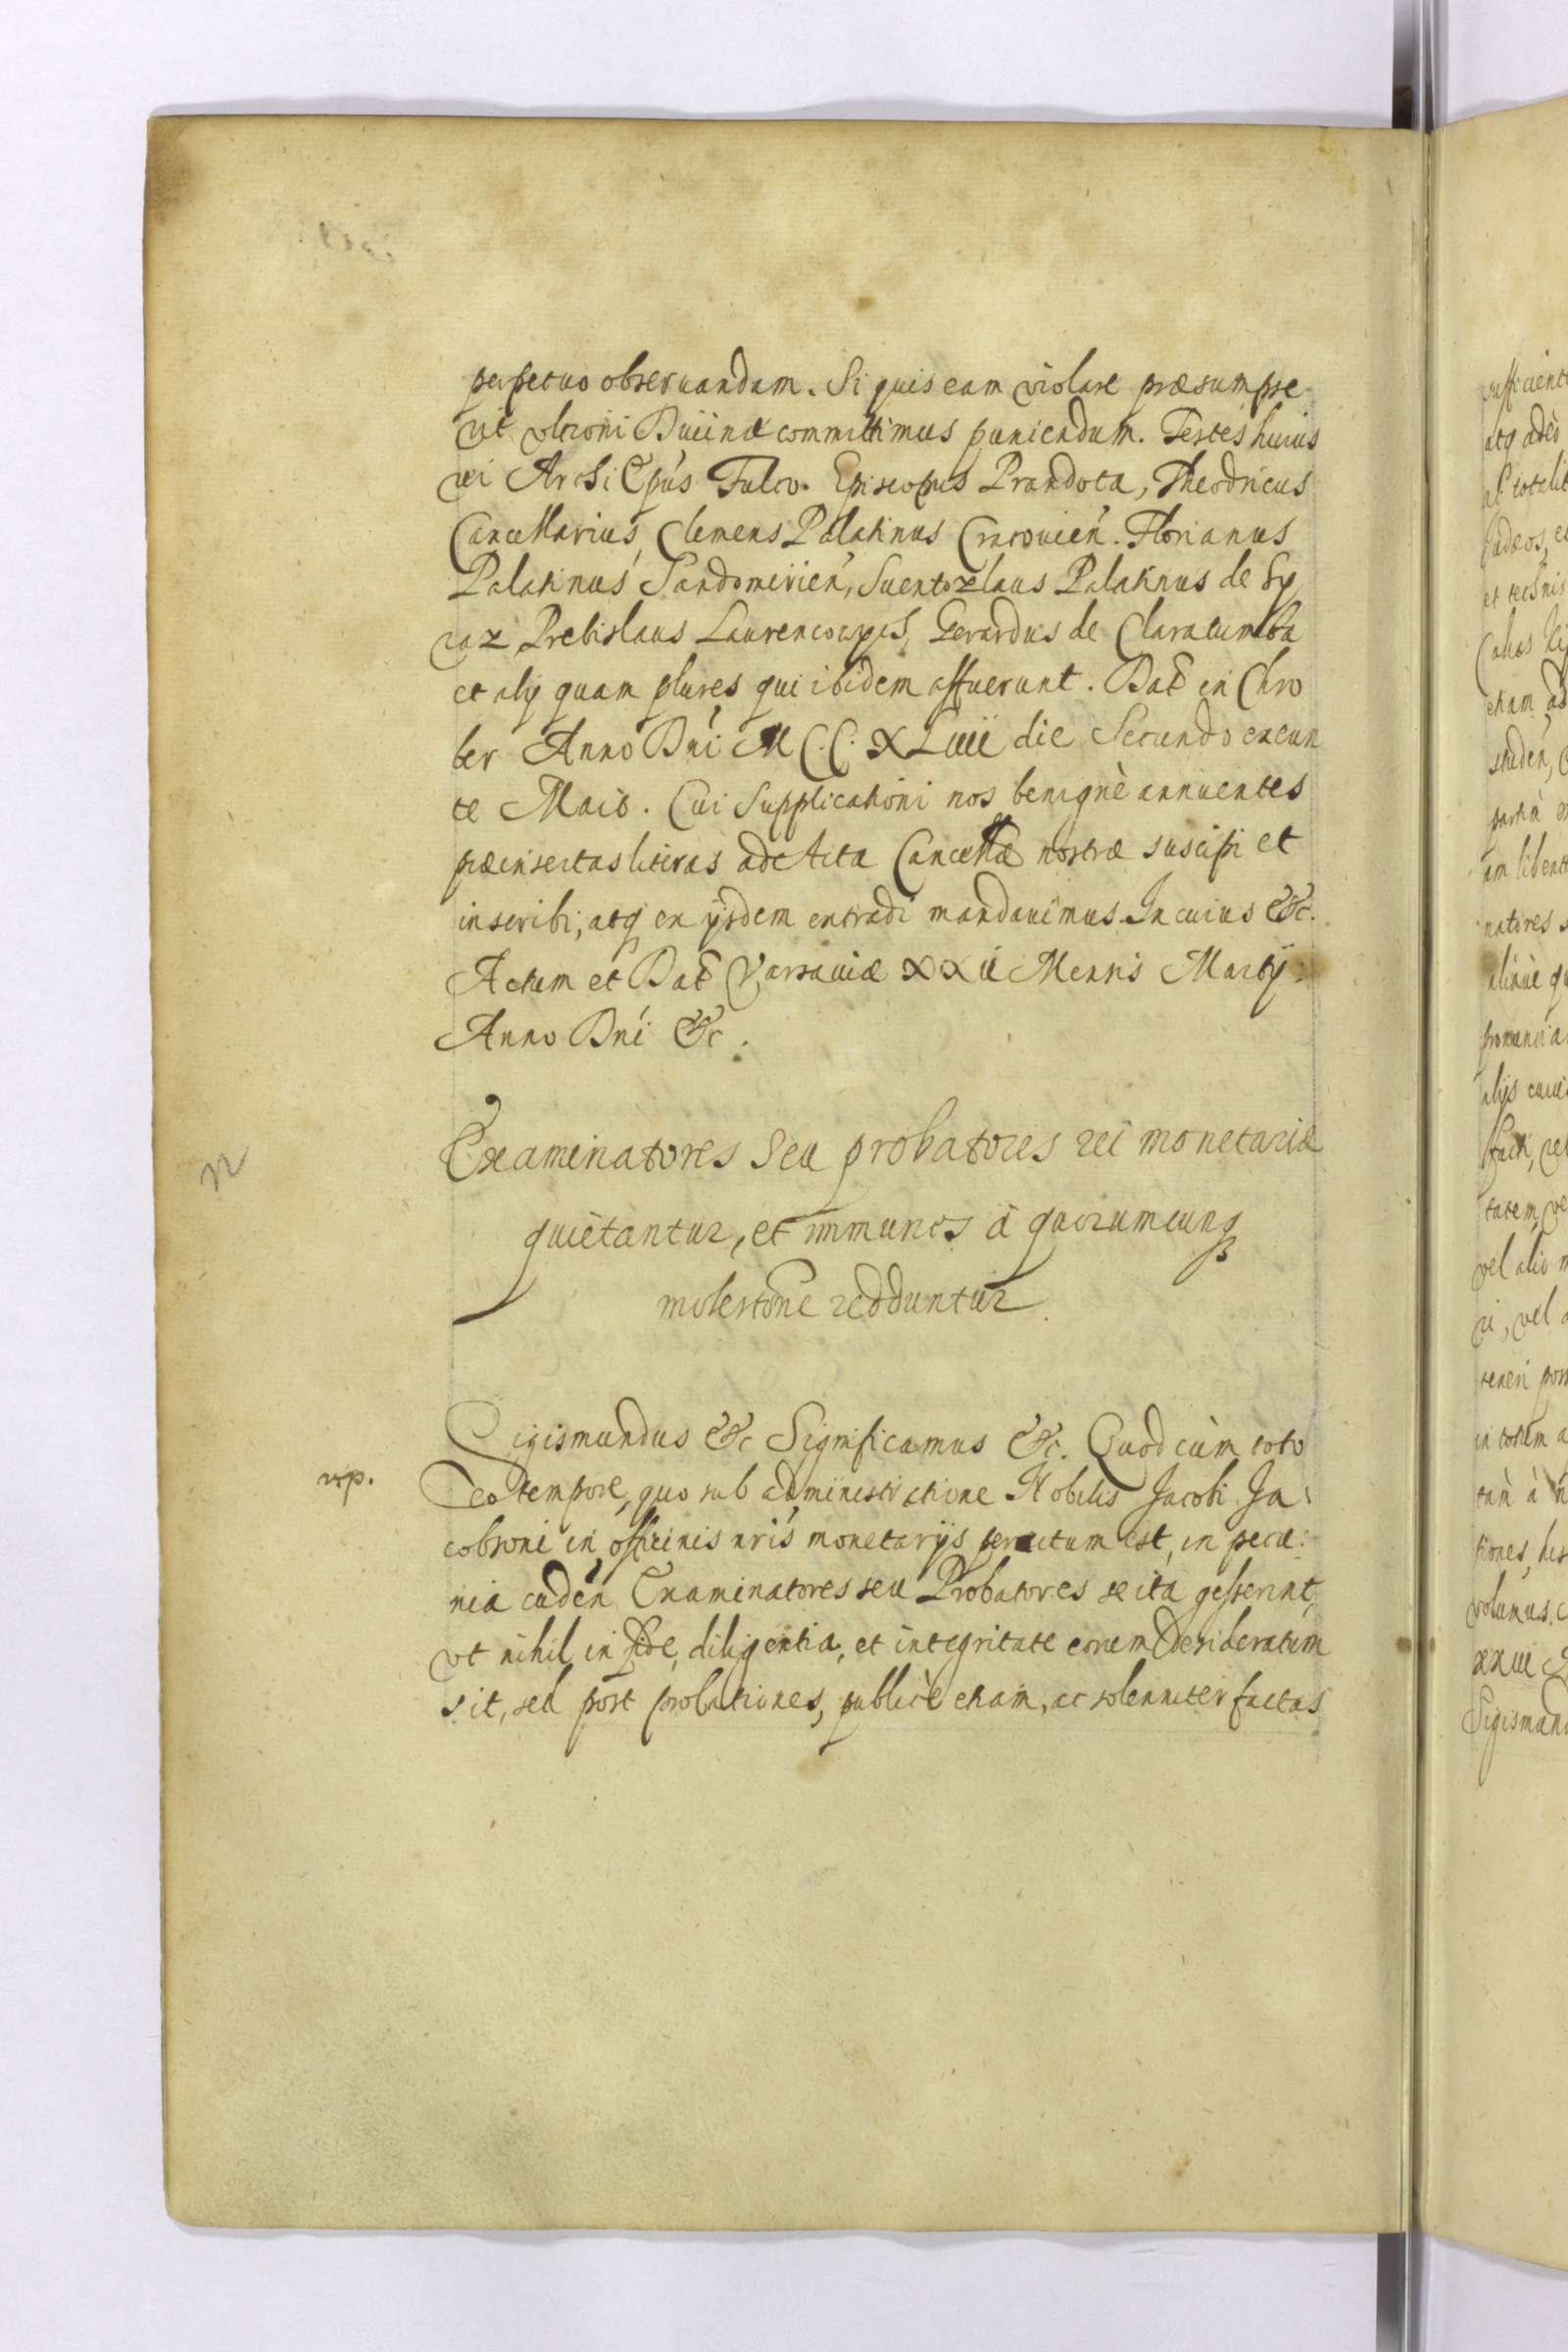 perpetuo obseruandam. Si quis eam violare præsumpse
rit vltioni Diuinæ committimus puniendum. Testes huius
rei Archi Epús Fulco. Episcopus Prandota, Theodricus
Cancellarius, Clemens Palatinus Cracouien. Florianus
Palatinus Sandomirien, Suentozlaus Palatinus de Sy
raz Prebislaus Gerardus de Claratumba
et alij quam plures qui ibidem affuerunt. Dat in Chro
ber Anno Dni M.CC.XLiiii die Secundo exeun
te Maio. Cui Supplicationi nos benignè annuentes
præinsertas literas ad Acta Cancellæ nostræ suscipi et
inscribi, atq ex ijsdem extradi mandauimus. In cuius &c.
Actum et Dat Varsauiæ XXii Mensis Martij
Anno Dni &c.
Examinatores seu probatores rei monetariæ
quietantur, et immunes à quorumcunq
molestone redduntur.
Sigismundus &c Significamus &c. Quod cùm toto
rp.
eo tempore, quo sub administratione Nobilis Jacobi Ja
cobsoni in officinis nris monetarijs seruitum est, in pecu:
nia cuden Examinatores seu Probatores se ita gesserint,
vt nihil in fide, diligentia, et integritate eorum desideratum
sit, sed post probationes, publicè etiam, ac solenniter factas
sufficient
atq adeò
Judæos, e
et technis
etiam ad
studen,
am libent
natores s
alijs
tatem, ve
vel alio m
ri, vel
teneri poss
in totum a
tiones, his
volumus.
xxiii
Sigismund